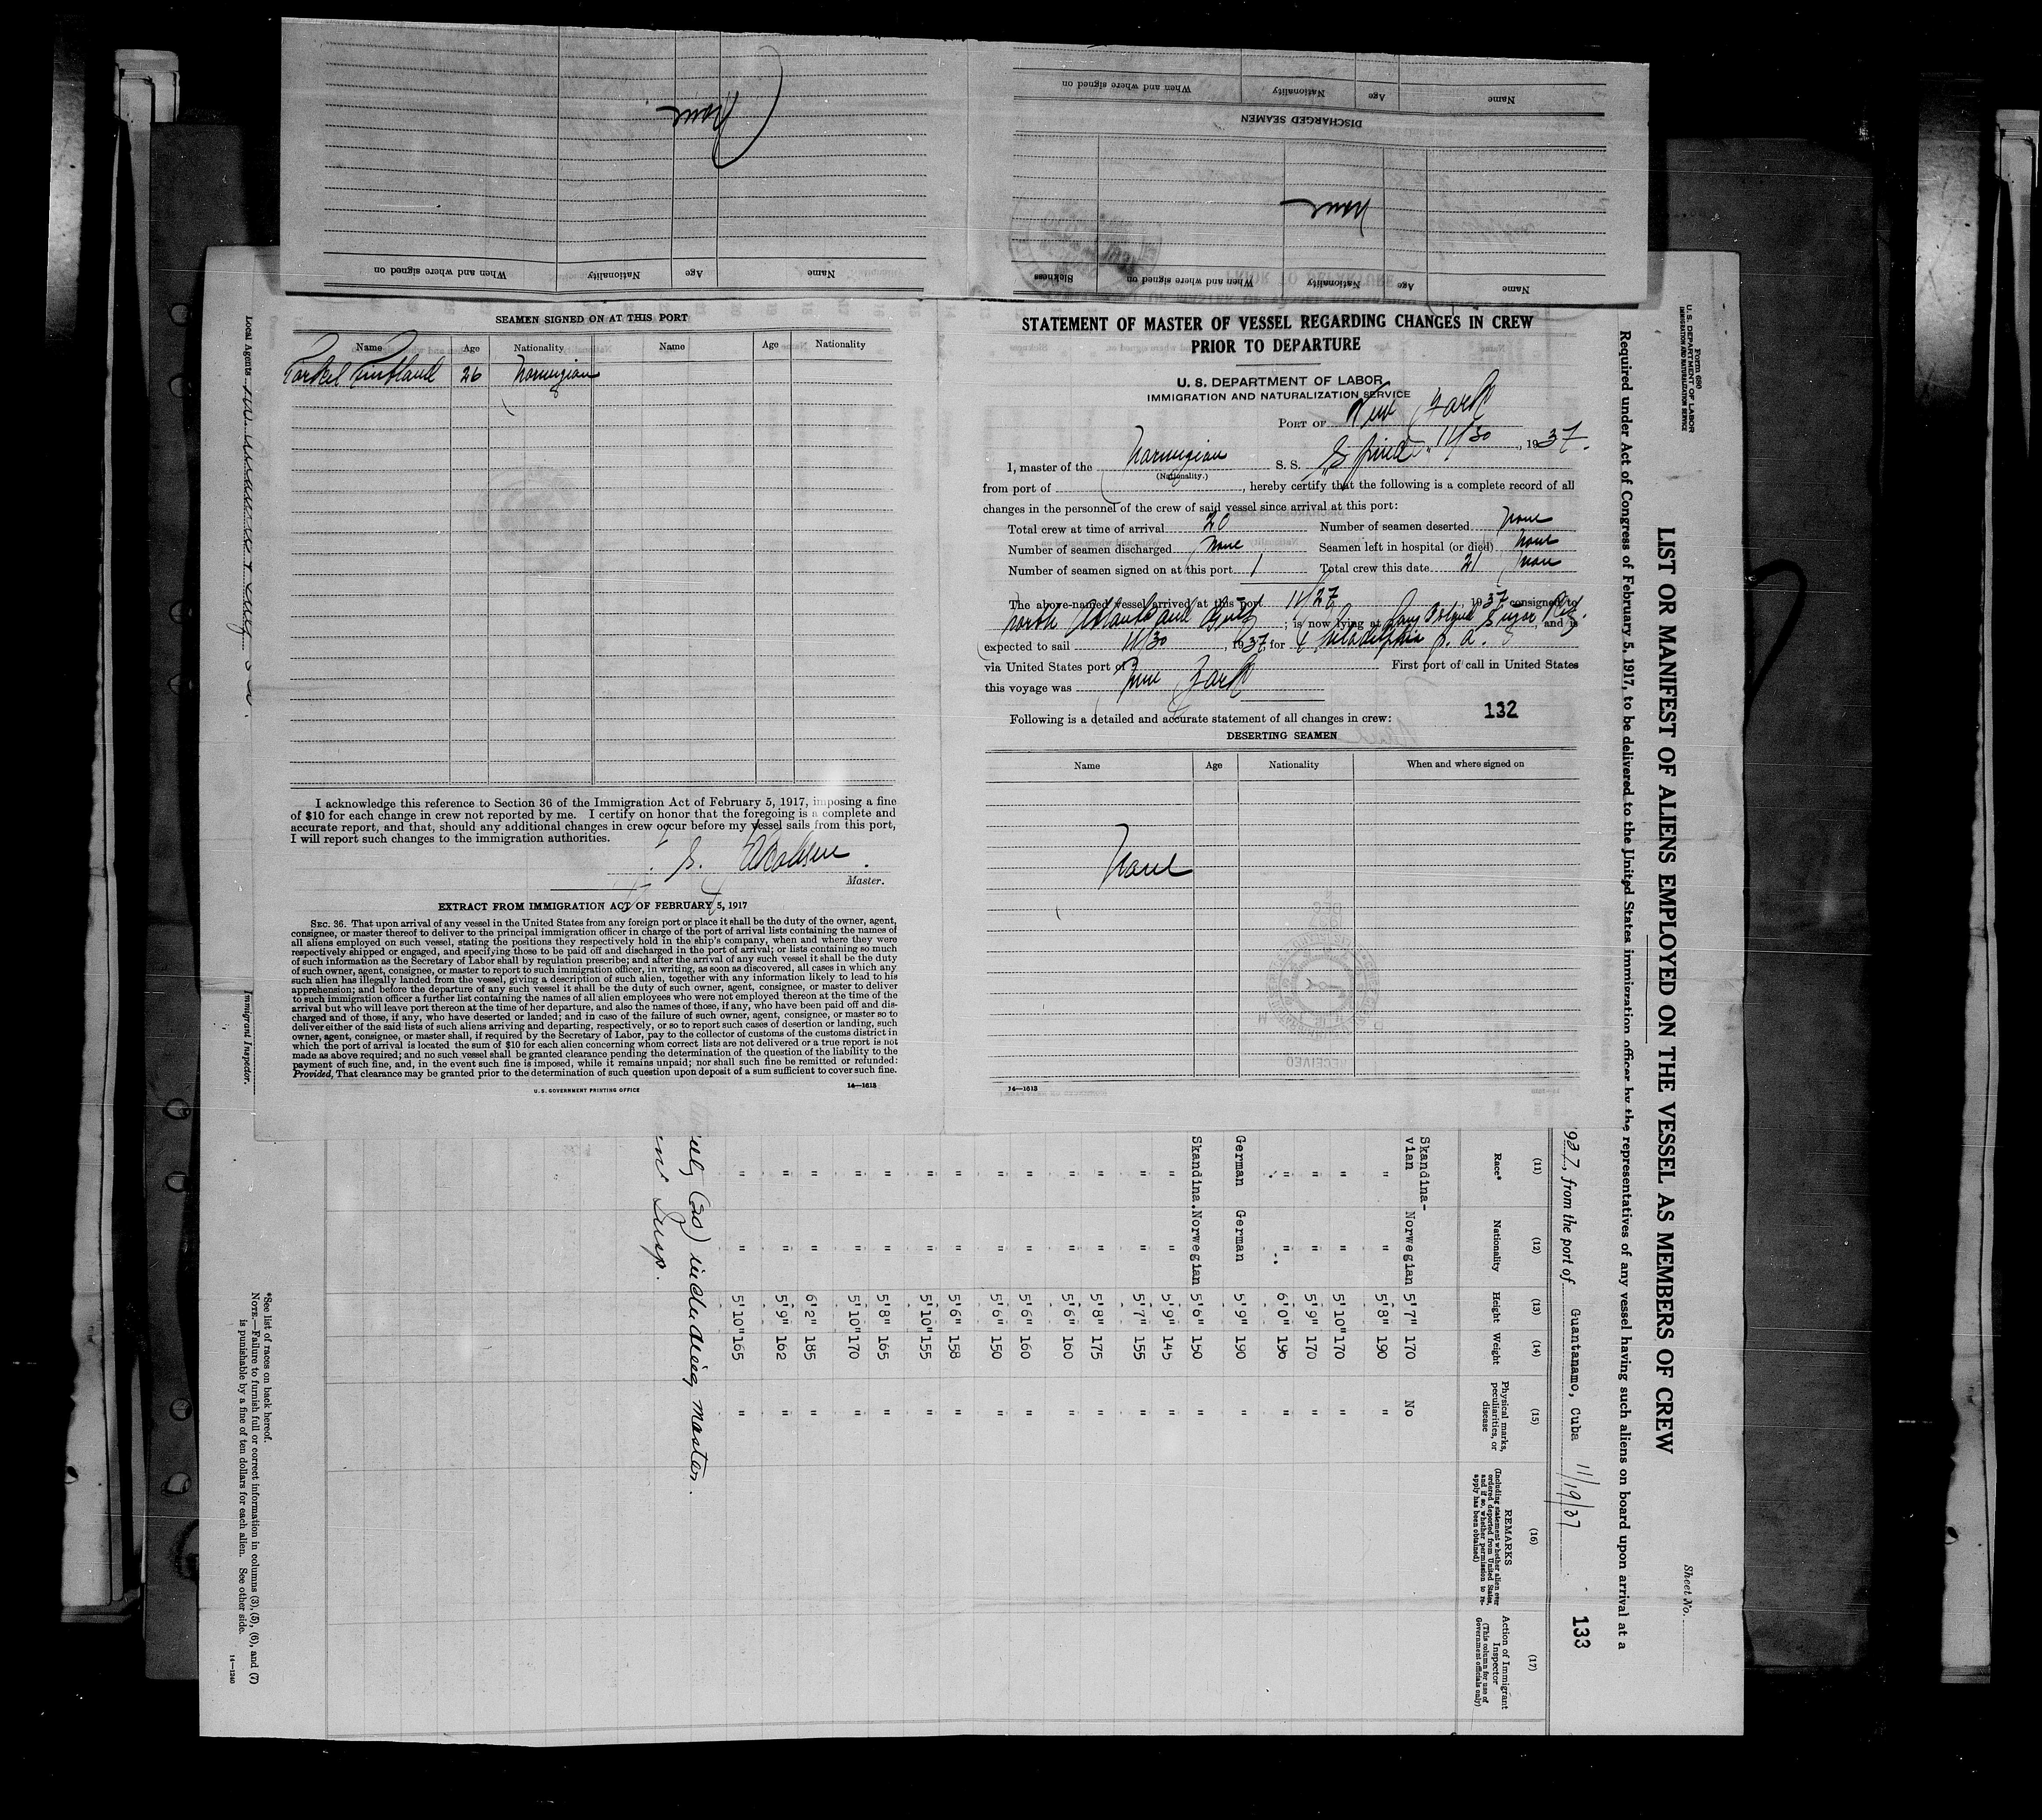 When and where signed on
Nationality
Age
Name
DISCHARGED SEAMEN
None
None
Name
Age
Nationality
When and where signed on
Name
Age
Nationality
When and where signed on
Sickness
SEAMEN SIGNED ON AT THIS PORT
Name Age Nationality Name Age Nationality
26 Norwegian
I acknowledge this reference to Section 36 of the Immigration Act of February 5, 1917, imposing a fine
of $10 for each change in crew not reported by me. I certify on honor that the foregoing is a complete and
accurate report, and that, should any additional changes in crew occur before my vessel sails from this port,
I will report such changes to the immigration authorities.
Master.
EXTRACT FROM IMMIGRATION ACT OF FEBRUARY 5, 1917
SEC. 36. That upon arrival of any vessel in the United States from any foreign port or place it shall be the duty of the owner, agent,
consignee, or master thereof to deliver to the principal immigration officer in charge of the port of arrival lists containing the names of
all aliens employed on such vessel, stating the positions they respectively hold in the ship's company, when and where they were
respectively shipped or engaged, and specifying those to be paid off and discharged in the port of arrival; or lists containing so much
of such information as the Secretary of Labor shall by regulation prescribe; and after the arrival of any such vessel it shall be the duty
of such owner, agent, consignee, or master to report to such immigration officer, in writing, as soon as discovered, all cases in which any
such alien has illegally landed from the vessel, giving a description of such alien, together with any information likely to lead to his
apprehension; and before the departure of any such vessel it shall be the duty of such owner, agent, consignee, or master to deliver
to such immigration officer a further list containing the names of all alien employees who were not employed thereon at the time of the
arrival but who will leave port thereon at the time of her departure, and also the names of those, if any, who have been paid off and dis-
charged and of those, if any, who have deserted or landed; and in case of the failure of such owner, agent, consignee, or master so to
deliver either of the said lists of such aliens arriving and departing, respectively, or so to report such cases of desertion or landing, such
owner, agent, consignee, or master shall, if required by the Secretary of Labor, pay to the collector of customs of the customs district in
which the port of arrival is located the sum of $10 for each alien concerning whom correct lists are not delivered or a true report is not
made as above required; and no such vessel shall be granted clearance pending the determination of the question of the liability to the
payment of such fine, and, in the event such fine is imposed, while it remains unpaid; nor shall such fine be remitted or refunded:
Provided, That clearance may be granted prior to the determination of such question upon deposit of a sum sufficient to cover such fine.
U.S. GOVERNMENT PRINTING OFFICE 14—1613
STATEMENT OF MASTER OF VESSEL REGARDING CHANGES IN CREW
PRIOR TO DEPARTURE
U. S. DEPARTMENT OF LABOR
IMMIGRATION AND NATURALIZATION SERVICE
PORT OF New York
11/30, 1937.
I, master of the Norwegian S. S.
(Nationality.)
from port of , hereby certify that the following is a complete record of all
changes in the personnel of the crew of said vessel since arrival at this port:
Total crew at time of arrival 20 Number of seamen deserted none
Number of seamen discharged none Seamen left in hospital (or died) none
Number of seamen signed on at this port 1 Total crew this date 21
The above-named vessel arrived at this port 11/27, 1937 consigned to
North Atlantic and Gulf ; is now lying at Long Island Sugar, and is
expected to sail 11/30, 1937, for Philadelphia P. A.
via United States port of First port of call in United States
this voyage was New York
Following is a detailed and accurate statement of all changes in crew: 132
DESERTING SEAMEN
Name Age Nationality When and where signed on
None
14—1613
RECEIVED
Form 680
U. S. DEPARTMENT OF LABOR
IMMIGRATION AND NATURALIZATION SERVICE
Sheet No.
LIST OR MANIFEST OF ALIENS EMPLOYED ON THE VESSEL AS MEMBERS OF CREW
Required under Act of Congress of February 5, 1917, to be delivered to the United States immigration officer by the representatives of any vessel having such aliens on board upon arrival at a
1937, from the port of Guantanamo, Cuba 11/19/37
133
(11) (12) (13) (14) (15) (16) (17)
Race* Nationality Height Weight Physical marks, peculiarities, or disease REMARKS (Including statement whether alien ever ordered deported from United States, and if so, whether permission to re-apply has been obtained) Action of Immigrant Inspector (This column for use of Government officials only)
Skandina-
vian Norwegian 5'7" 170 No
" " 5'8" 190 "
" " 5'10" 170 "
" " 5'9" 170 "
" " 6'0" 196 "
German German 5'9" 190 "
Skandina. Norwegian 5'6" 150 "
" " 5'9" 145 "
" " 5'7" 155 "
" " 5'8" 175 "
" " 5'6" 160 "
" " 5'6" 160 "
" " 5'6" 150 "
" " 5'6" 158 "
" " 5'10" 155 "
" " 5'8" 165 "
" " 5'10" 170 "
" " 6'2" 185 "
" " 5'9" 162 "
" " 5'10" 165 "
(20) including master.
Insp.
Local Agents
Immigrant Inspector.
*See list of races on back hereof.
NOTE.—Failure to furnish full or correct information in columns (3), (5), (6), and (7)
is punishable by a fine of ten dollars for each alien. See other side.
14—1240